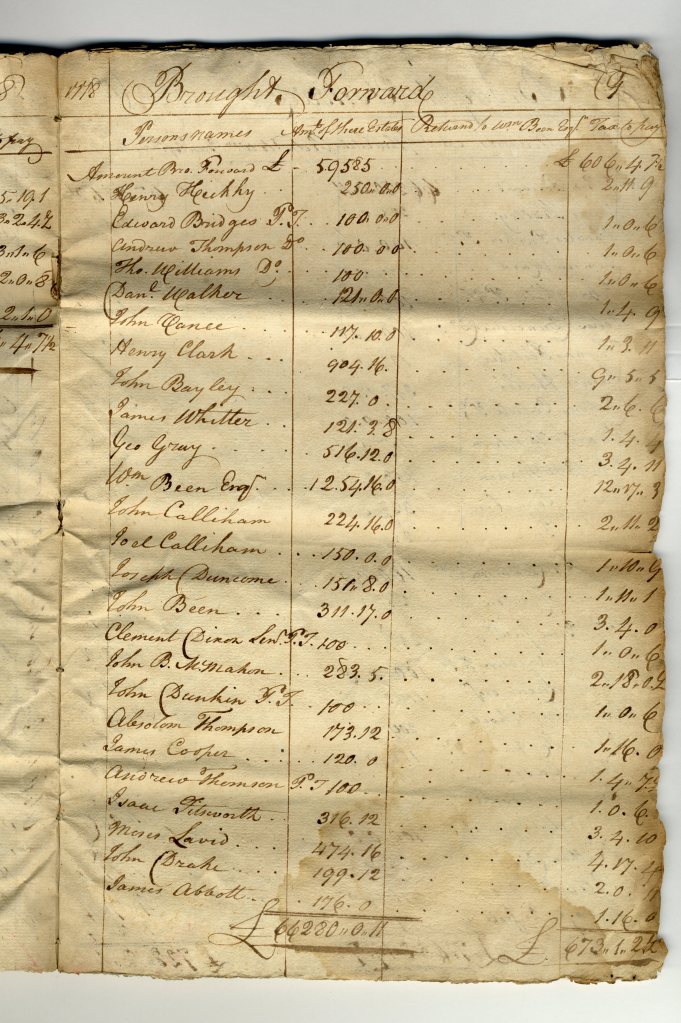 8
o pay
5..19.1
3..2.4½
3..1..6
2..0..8
2..1..0
4..7½
1778 Brought Forward 9
Persons names Amt. of there Estates Returnd to Wm Been Esqr. Tax to pay
Amount Bro. Forward £ 59585 £ 606..4.7½
Henry Hickky 250..0..0 2..11.9
Edward Bridges P.T. 100.0.0 1..0..6
Andrew Thompson Do 100.0.0 1..0..6
Tho. Williams Do. 100 1..0..6
Danl. Walker 121..0..0 1..4.9
John Vance 117.10.0 1..3.11
Henry Clark 904.16. 9..5..5
John Bayley 227.0. 2..6.6
James Whitter 121.3.8 1.4.4
Geo Gray 516.12.0 3.4.11
Wm Been Esqr. 1254.16.0 12..17..3
John Calliham 224.16.0 2..11..2
Joel Calliham 150.0.0 1..10..9
Joseph Duncome 151..8.0 1..11..1
John Been 311.17.0 3.4.0
Clement Dixon Senr. P.T. 100 1..0..6
John B. McMahon 283.5. 2..18..0.½
John Dunkin P.T. 100 1..0..6
Absolom Thompson 173.12 1..16.0
James Cooper 120.0 1.4..7½
Andrew Thomson P.T 100 1.0.6
Isaac Titsworth 316.12 3.4.10
Moses Lavid 474.16 4.17.4
John Drake 199.12 2.0.
James Abbott 176.0 1.16.0
£ 66280..0..11 £ 673..1..2½